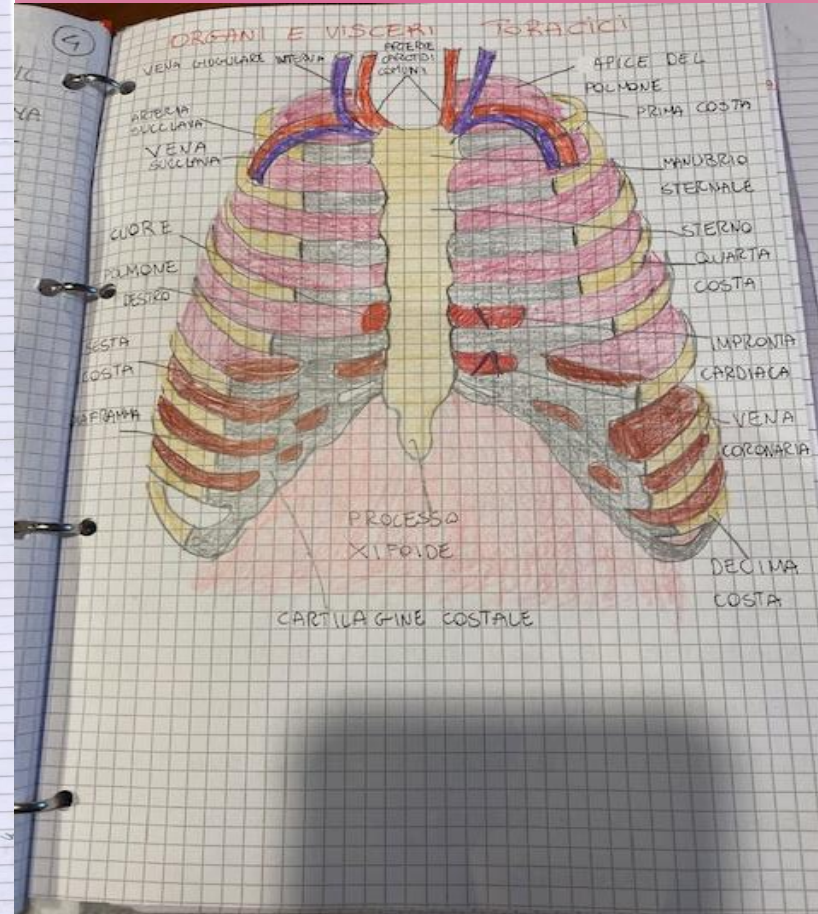 4
ORGANI E VISCERI TORACICI
VENA GIOGULARE INTERNA
ARTERIE
CAROTIDI
COMUNI
APICE DEL
POLMONE
PRIMA COSTA
ARTERIA
SUCCLAVA
VENA
SUCCLAVA
MANUBRIO
STERNALE
STERNO
CUORE
QUARTA
COSTA
POLMONE
DESTRO
SESTA
COSTA
IMPRONTA
CARDIACA
VENA
CORONARIA
PROCESSO
XIFOIDE
DECIMA
COSTA
CARTILAGINE COSTALE